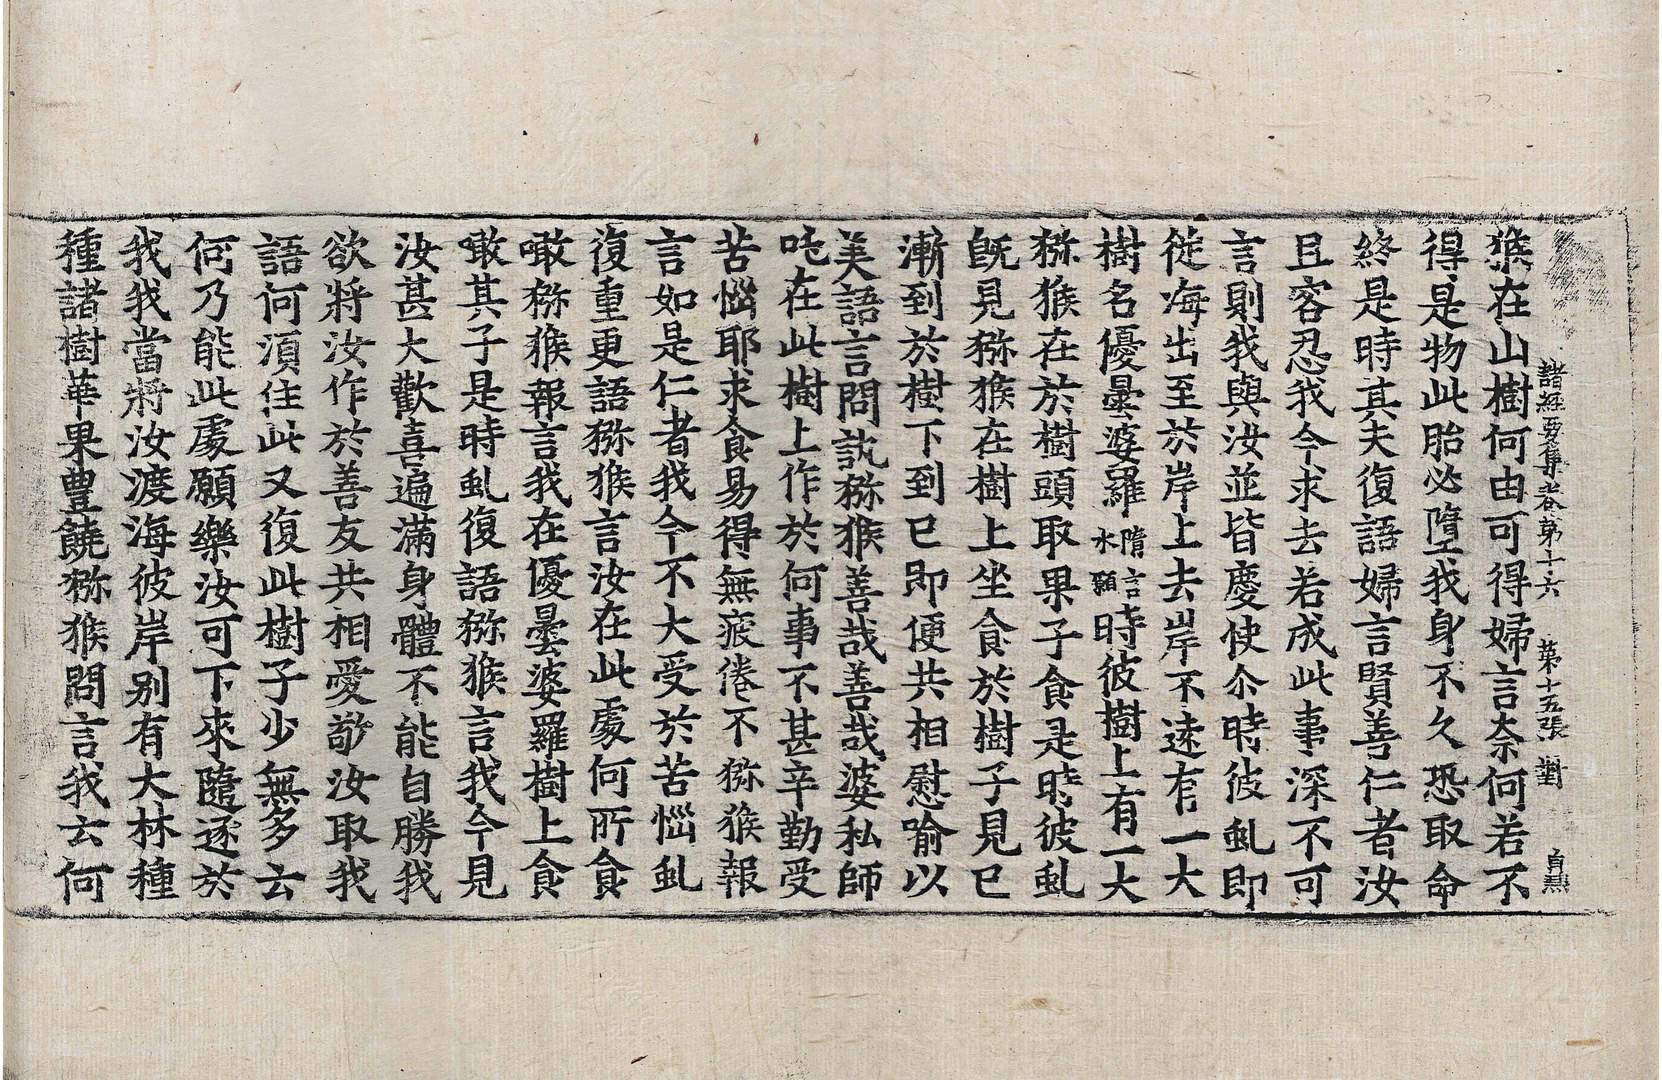 諸經要集卷第十六 第十五張 對
猴在山樹何由可得婦言奈何若不
得是物此胎必墮我身不久恐取命
終是時其夫復語婦言賢善仁者汝
且容忍我今求去若成此事深不可
言則我與汝並皆慶快尒時彼虬即
從海出至於岸上去岸不遠有一大
樹名優曇婆羅隋言水願時彼樹上有一大
猕猴在於樹頭取果子食是時彼虬
旣見猕猴在樹上坐食於樹子見已
漸到於樹下到已即便共相慰喻以
美語言問訊猕猴善哉善哉婆私師
吒在此樹上作於何事不甚辛勤受
苦惱耶求食易得無疲倦不猕猴報
言如是仁者我今不大受於苦惱虬
復重更語猕猴言汝在此處何所食
噉猕猴報言我在優曇婆羅樹上食
噉其子是時虬復語猕猴言我今見
汝甚大歡喜遍滿身體不能自勝我
欲將汝作於善友共相愛敬汝取我
語何須住此又復此樹子少無多云
何乃能此處願樂汝可下來隨逐於
我我當將汝渡海彼岸別有大林種
種諸樹華果豐饒猕猴問言我云何